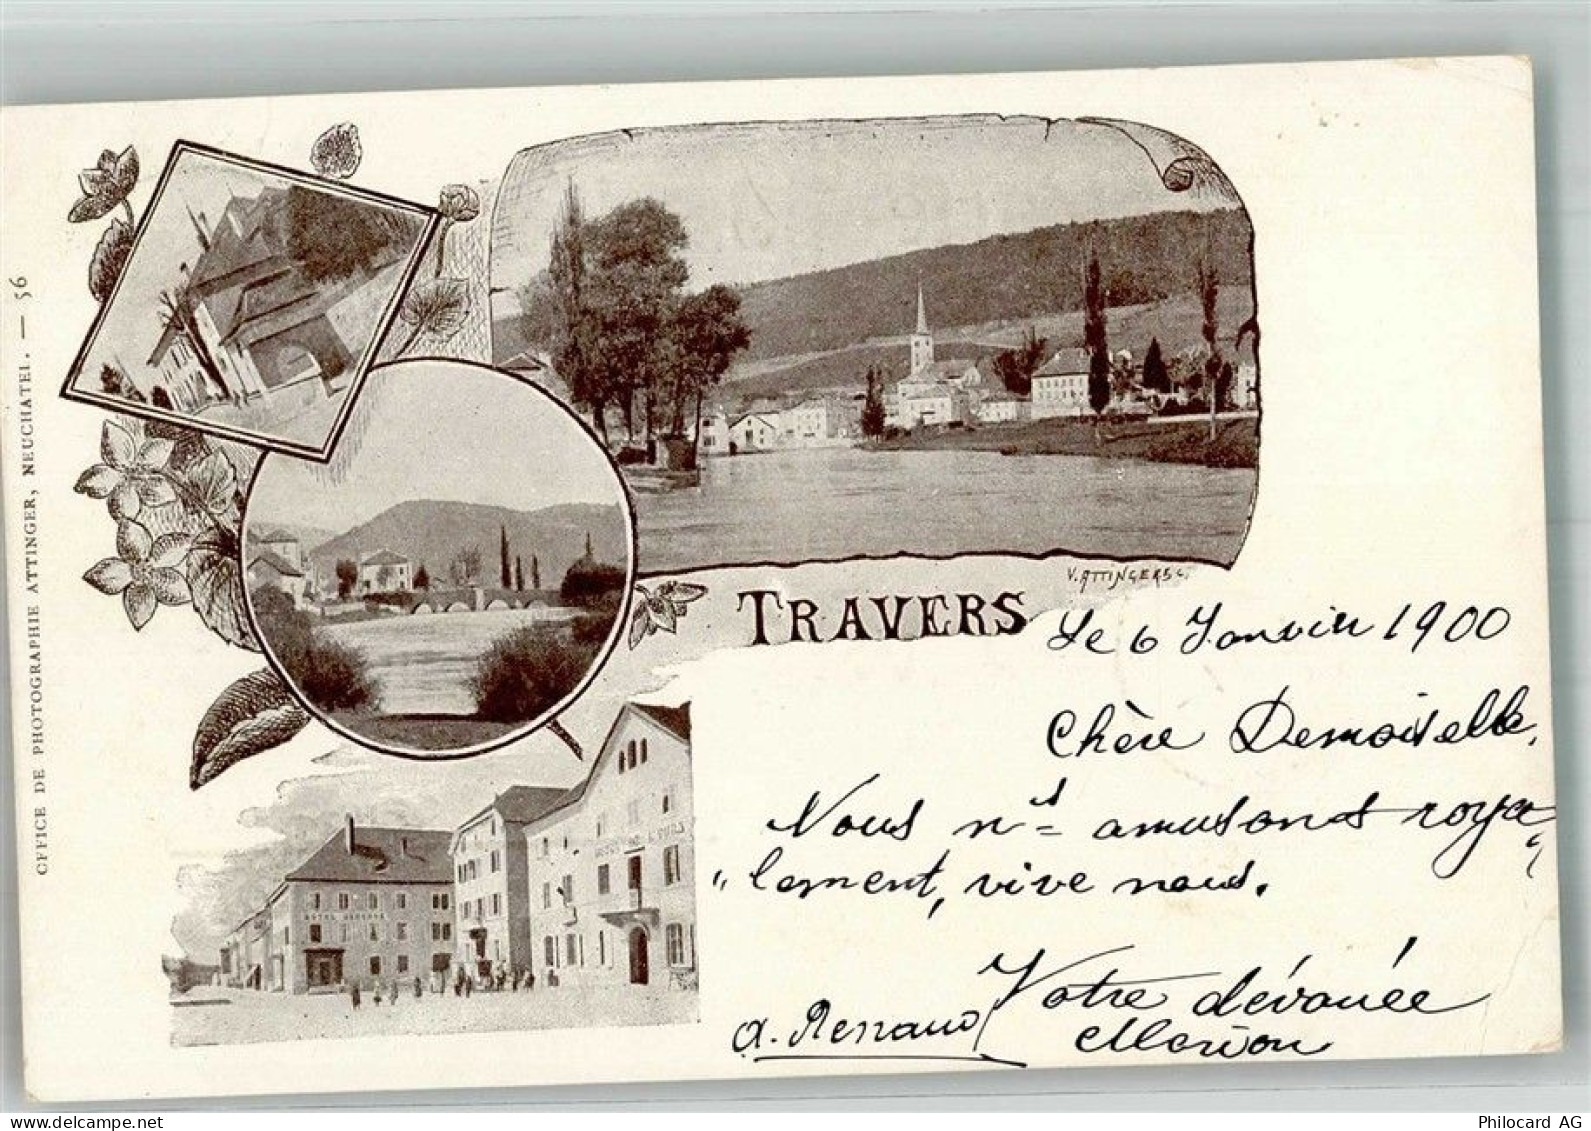 OFFICE DE PHOTOGRAPHIE ATTINGER, NEUCHATEL. — 56
V. ATTINGER SC.
TRAVERS
Le 6 Janvier 1900
Chère Demoiselle,
Nous ns amusons roya„
„lement, vive nous.
Votre dévouée
A. Renaud Marion
HOTEL
L'OURS
delcampe.net
Philocard AG